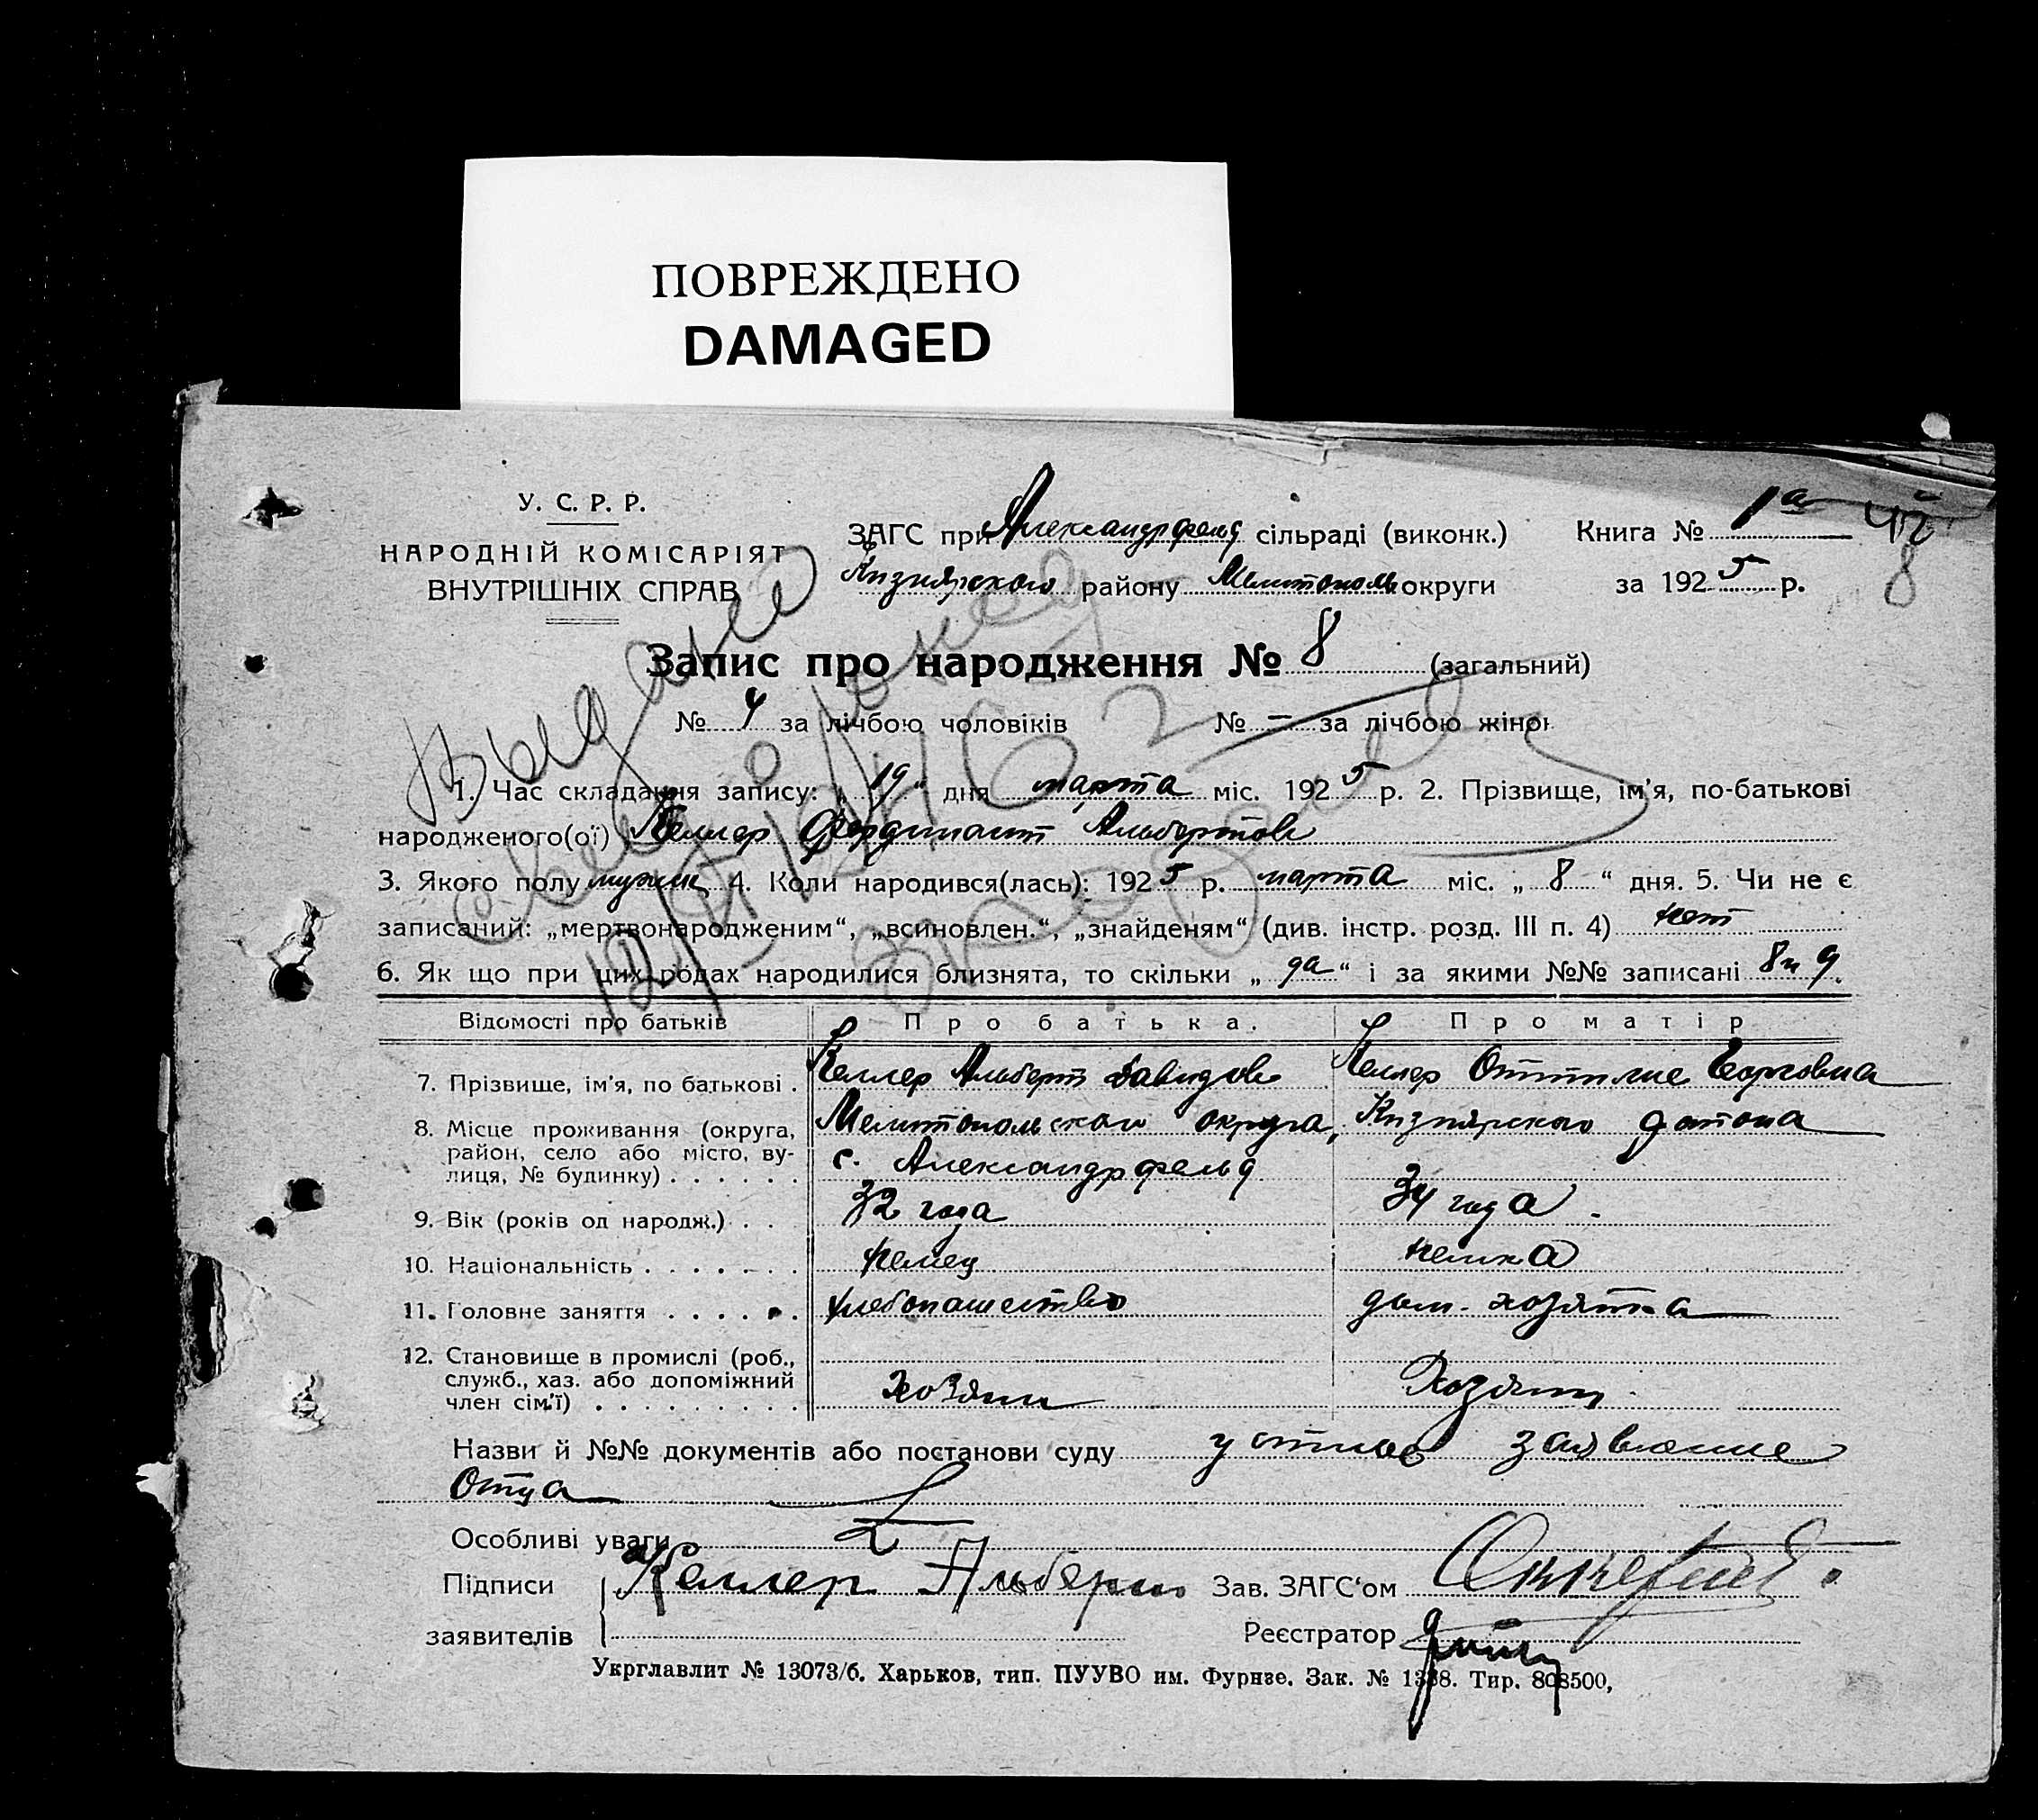 ПОВРЕЖДЕНО
DAMAGED
У. С. Р. Р.
НАРОДНІЙ КОМІСАРІЯТ
ВНУТРІШНІХ СПРАВ
ЗАГС при Александрфельд сільраді (виконк.)
Кизиярского району Мелитополь округи
Книга № 1а
за 1925 р.
8
Запис про народження № 8 (загальний)
№ 4 за лічбою чоловіків № — за лічбою жінок
Выдано
1. Час складання запису: „19“ дня марта міс. 1925 р. 2. Прізвище, ім'я, по-батькові
народженого(ої) Келлер Фердинант Альбертов
3. Якого полу мужск 4. Коли народився(лась): 1925 р. марта міс. „8“ дня. 5. Чи не є
записаний: „мертвонародженим“, „всиновлен.“, „знайденям“ (див. інстр. розд. III п. 4) нет
6. Як що при цих родах народилися близнята, то скільки „да“ і за якими №№ записані 8 и 9.
Відомості про батьків Про батька. Про матір
7. Прізвище, ім'я, по батькові . Келлер Альберт Давидов Келлер Оттилие Георговна
8. Місце проживання (округа, район, село або місто, вулиця, № будинку) . . . . . . Мелитопольского округа, Кизиярского района
с. Александрфельд
9. Вік (років од народж.) . . 32 года 34 года
10. Національність . . . . . . . немец немка
11. Головне заняття . . . . . . хлебопашество дом. хозяйка
12. Становище в промислі (роб., служб., хаз. або допоміжний член сім'ї) . . . . . . . . . хозяин хозяин
Назви й №№ документів або постанови суду устное заявление
Отца
Особливі уваги
Підписи Келлер Альберт Зав. ЗАГС'ом
заявителів Реєстратор
Укрглавлит № 13073/б. Харьков, тип. ПУУВО им. Фурнзе. Зак. № 1338. Тир. 808500,